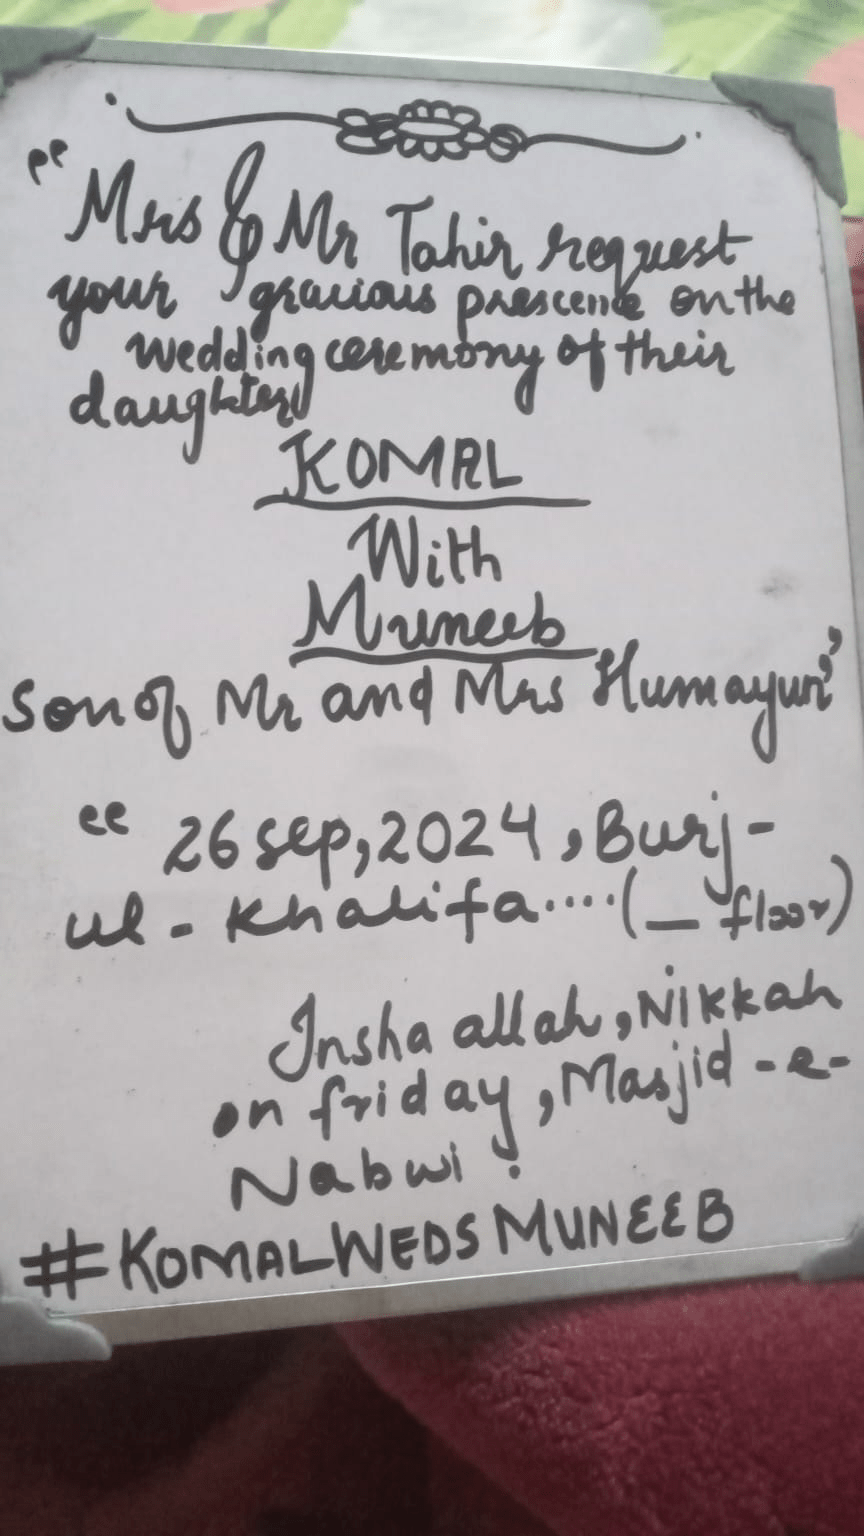 "Mrs & Mr Tahir request
your gracious prescence on the
wedding ceremony of their
daughter
KOMAL
With
Muneeb
Son of Mr and Mrs Humayun"
"26 sep, 2024, Burj-
ul-Khalifa....(_ floor)
Insha allah, Nikkah
on friday, Masjid-e-
Nabwi.
#KOMALWEDSMUNEEB